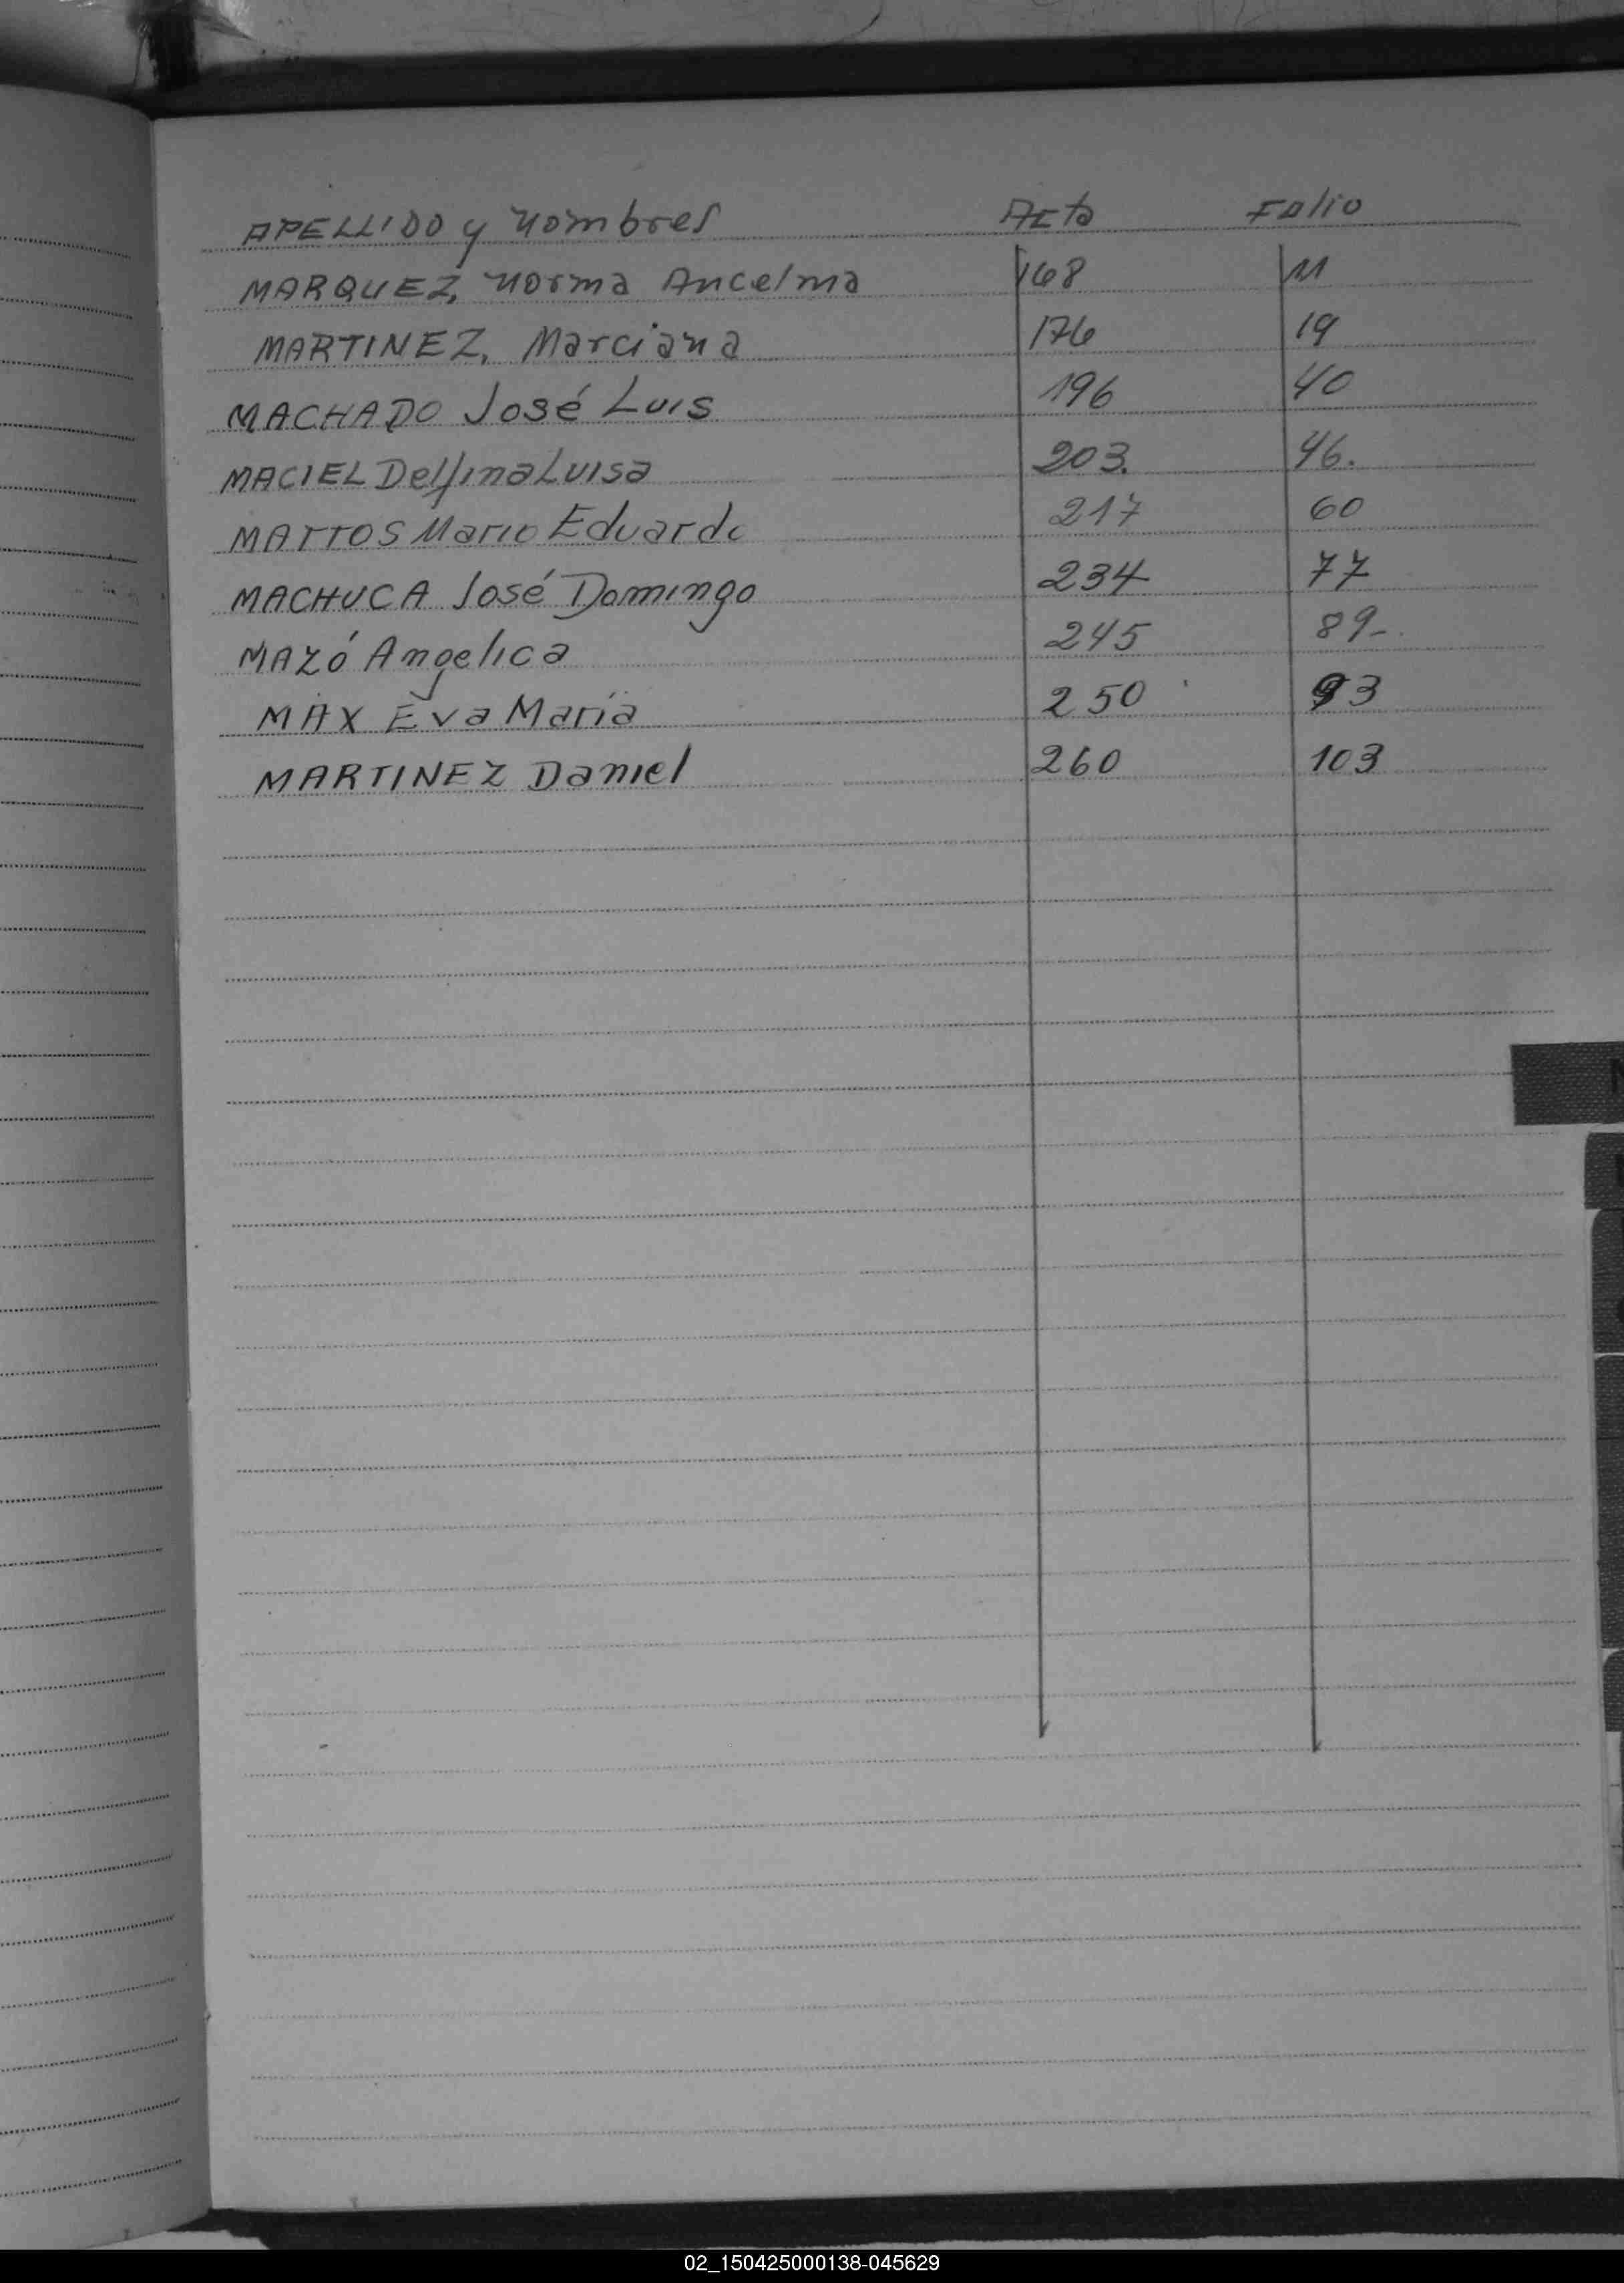 APELLIDO y Nombres Acta Folio
MARQUEZ, Norma Ancelma 168 11
MARTINEZ, Marciana 176 19
MACHADO José Luis 196 40
MACIEL Delfina Luisa 203. 46.
MATTOS Mario Eduardo 217 60
MACHUCA José Domingo 234 77
MAZÓ Angelica 245 89-
MAX Eva María 250 93
MARTINEZ Daniel 260 103
02_150425000138-045629